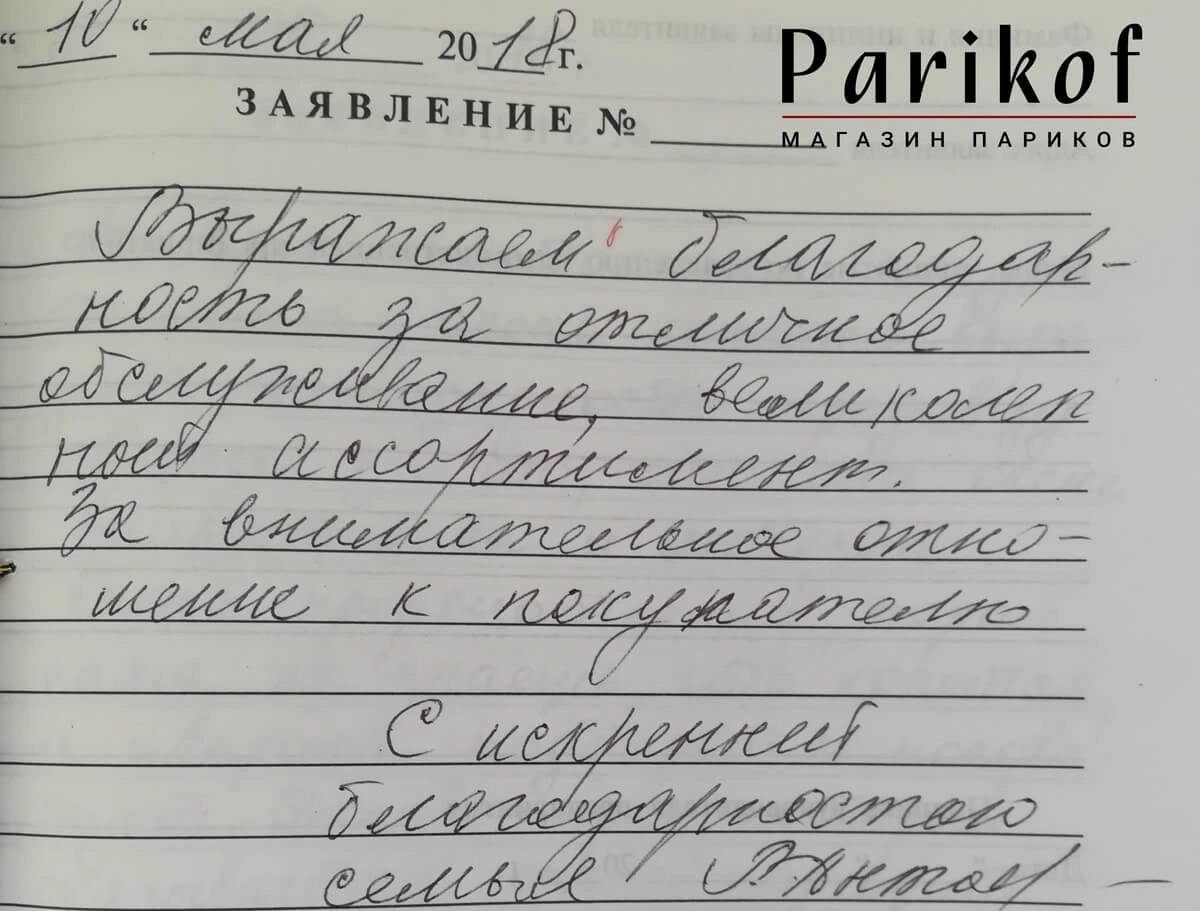 “ 10 “ мая 2018 г.
Parikof
МАГАЗИН ПАРИКОВ
ЗАЯВЛЕНИЕ №
Выражаем благодар-
ность за отличное
обслуживание, великолеп
ный ассортимент.
За внимательное отно-
шение к покупателю
С искренней
благодарностью
семья